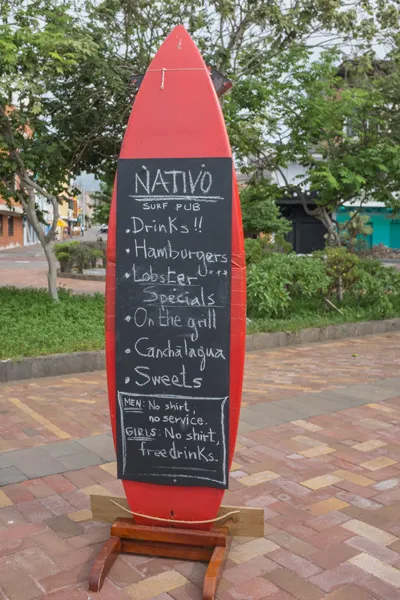 NATIVO
SURF PUB
• Drinks!!
• Hamburgers
• Lobster ***
Specials
• On the grill
• Canchálagua
• Sweets
MEN: No shirt,
no service.
GIRLS: No shirt,
free drinks.